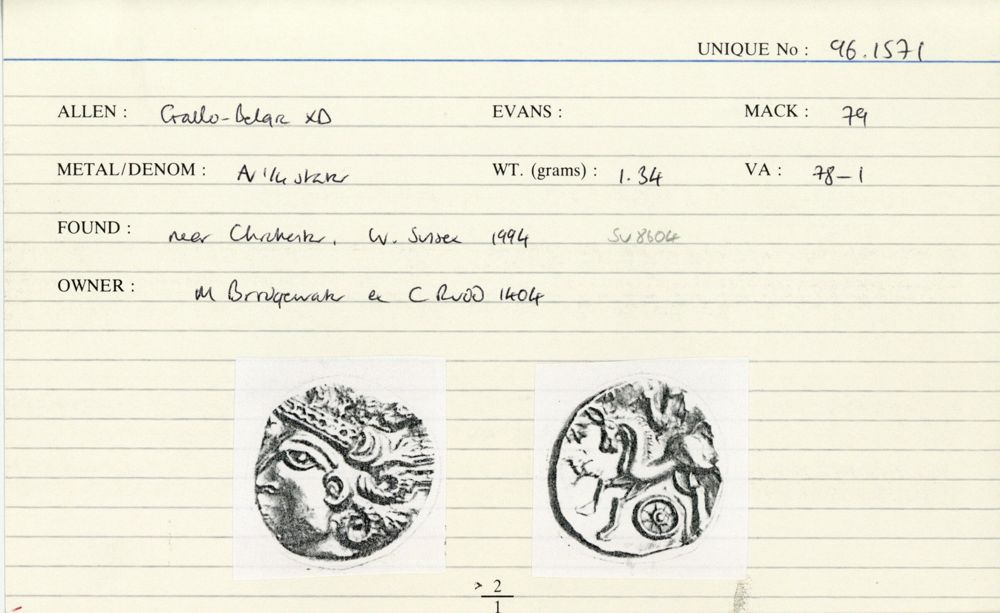 UNIQUE No : 96.1571
ALLEN : Gallo-Belgic XD EVANS : MACK : 79
METAL/DENOM : AV 1/4 stater WT. (grams) : 1.34 VA : 78-1
FOUND : near Chichester, W. Sussex 1994 SU8604
OWNER : M Bridgewater ex C Rudd 1404
> 2
1